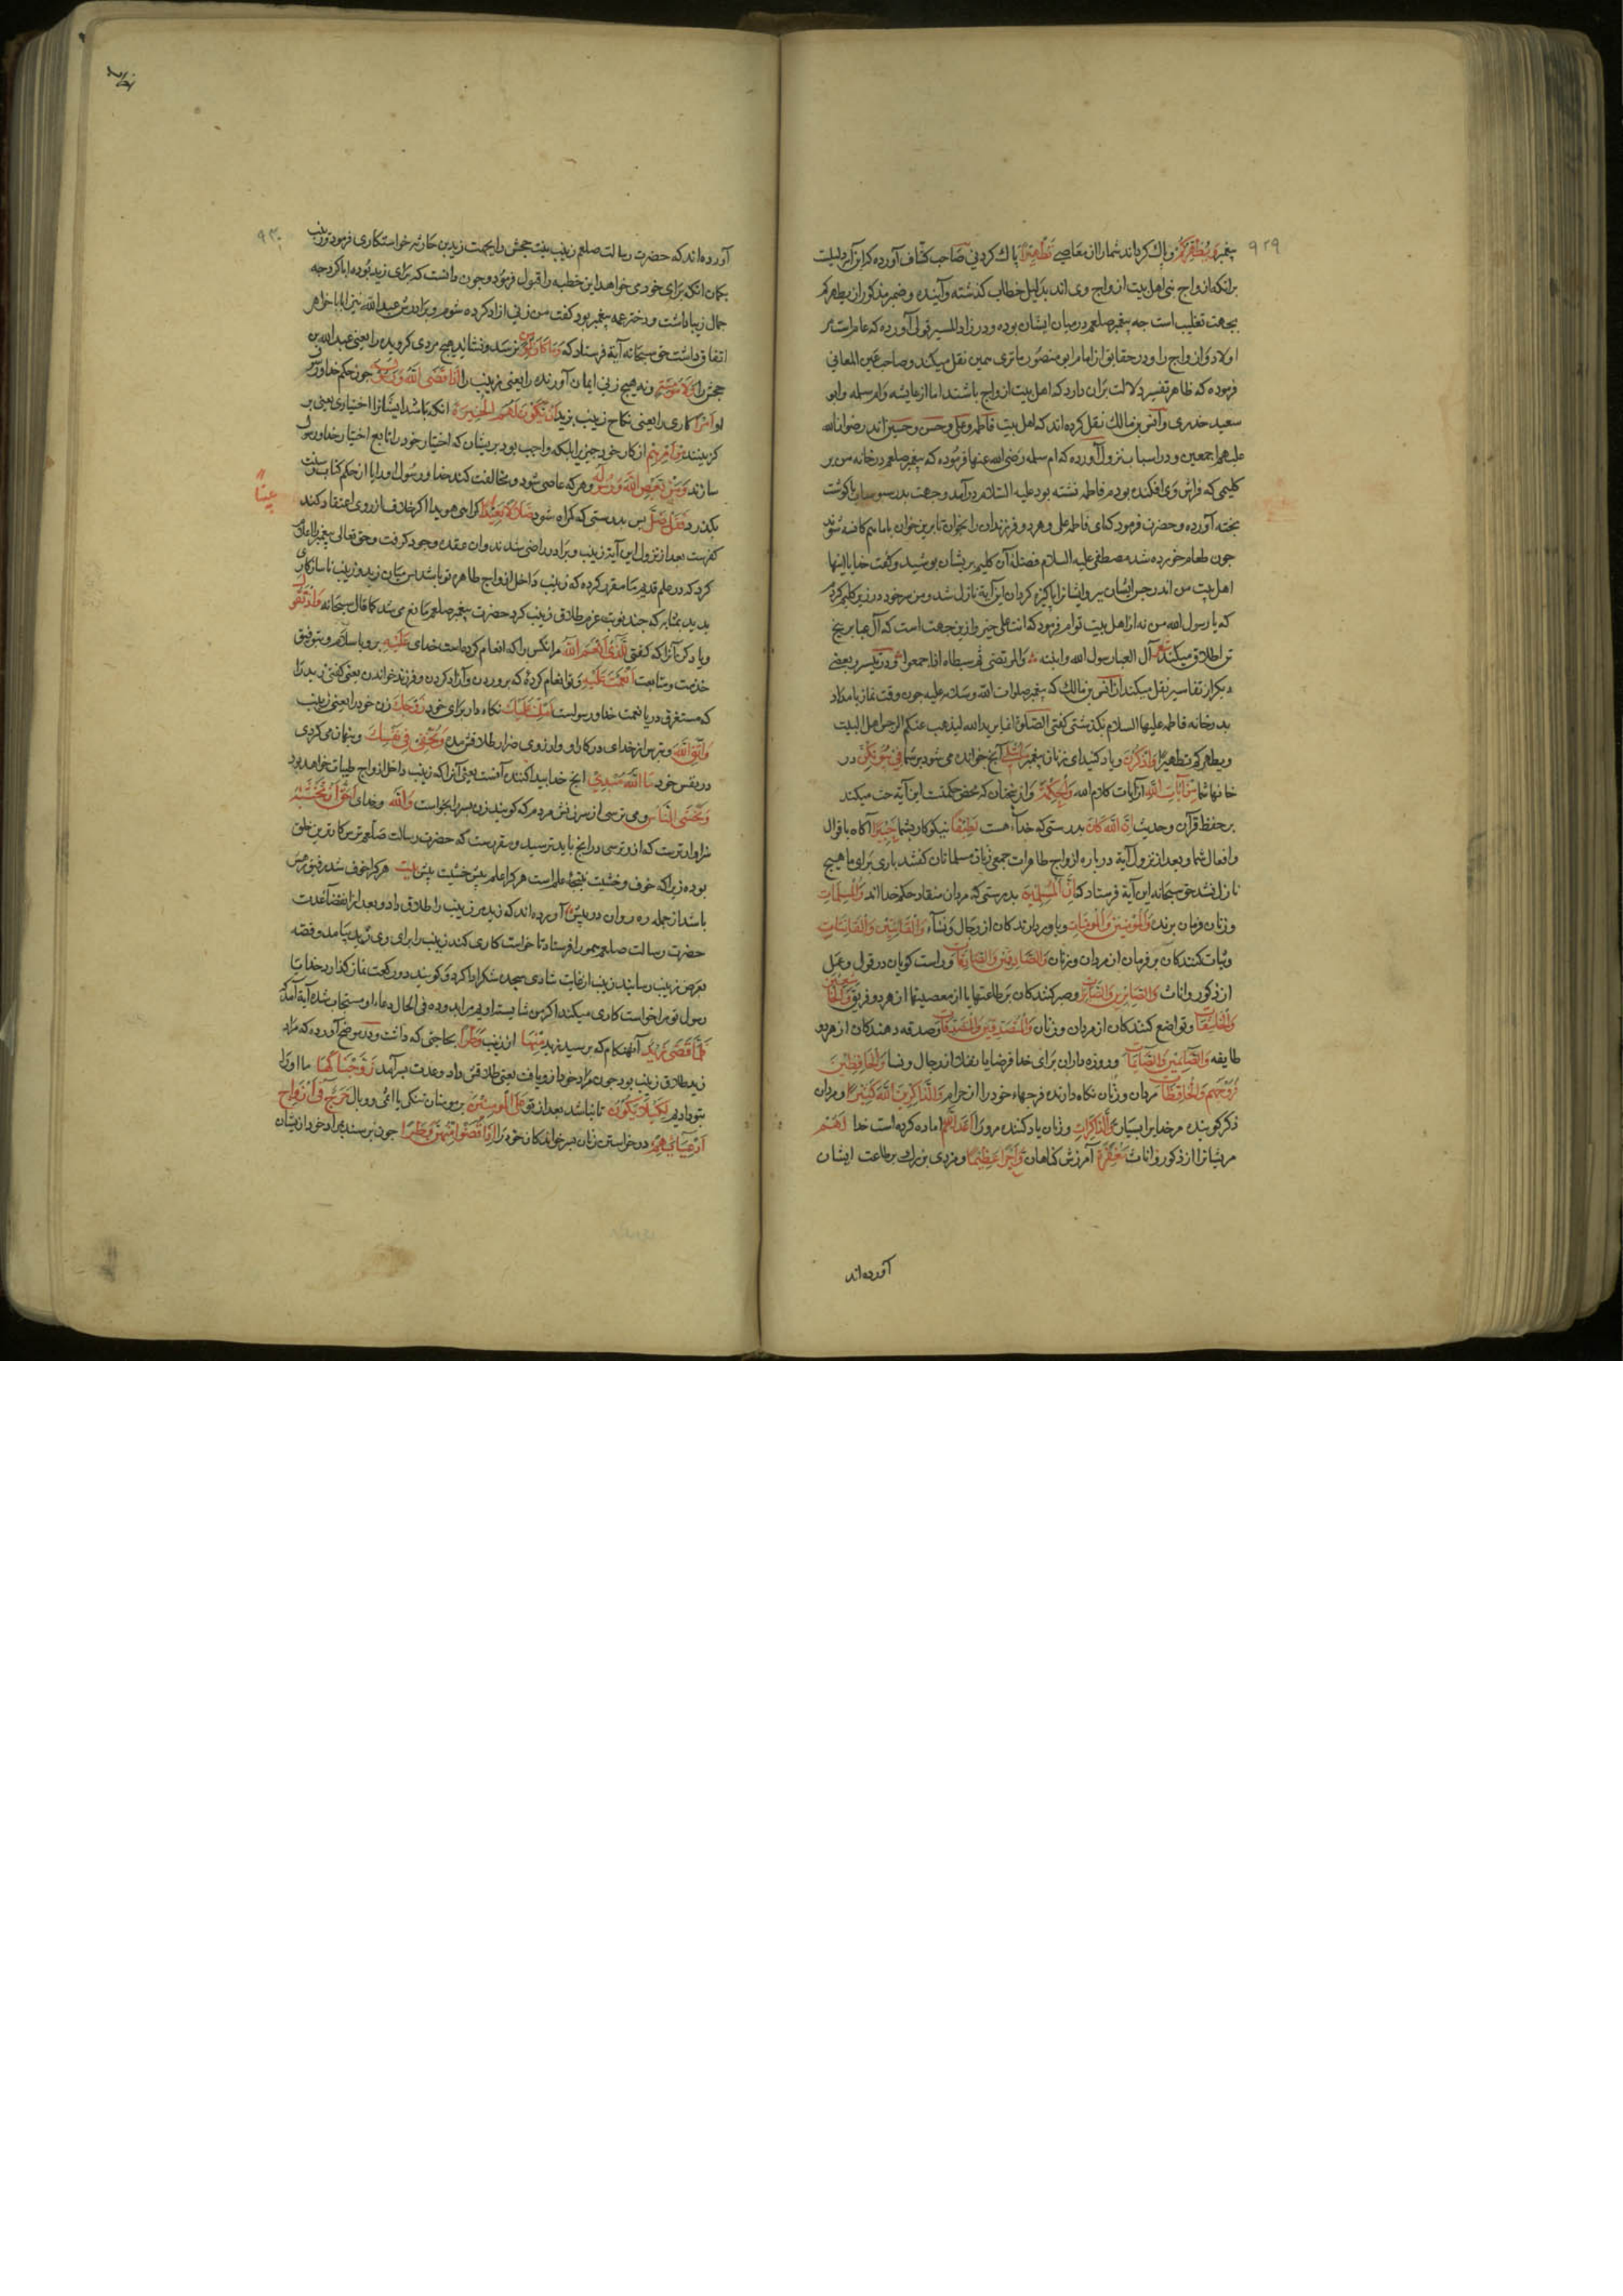 ۹۲۹
پیغمبر وَیُطَهِّرَکُمْ و پاک کرداند شما را از معاصی تَطْهِیرًا پاک کردنی صاحب کشاف آورده که این آیه دلیلست
برانکه ازواج نبی اهل بیت ازواج وی اند بدلیل خطاب کذشته و آینده و ضمیر مذکور از یطهرکم
بجهت تغلیب است جه پیغمبر صلعم در میان ایشان بوده و در زاد المسیر قولی آورده که عام است بر
اولاد و ازواج را و در حقایق از امام ابو منصور ماتریدی همین نقل میکند و صاحب عین المعانی
فرموده که ظاهر تفسیر دلالت بران دارد که اهل بیت ازواج باشند اما از عایشه و ام سلمه و ابو
سعید خدری و انس بن مالک نقل کرده اند که اهل بیت فاطمه و علی و حسن و حسین اند رضوان الله
علیهم اجمعین و در اسباب نزول آورده که ام سلمه رضی الله عنها فرموده که پیغمبر صلعم در خانه من بر
کلیمی که فراش وی افکنده بودم فاطمه نشسته بود علیه السلام درآمد و جهت پدر با کوشت
پخته آورده و حضرت فرمود که ای فاطمه علی و هر دو فرزندان را بخوان تا برین خوان با ما هم کاسه شوند
جون طعام خورده شد مصطفی علیه السلام فضله آن کلیم بریشان پوشید و کفت خدایا اینها
اهل بیت من اند رجس ازیشان ببر و ایشانرا پاکیزه کردان این آیة نازل شد و من سر خود در زیر کلیم کردم
که یا رسول الله من نه از اهل بیت توام فرمود که انت علی خیر و ازین جهت است که آل عبا بر پنج
تن اطلاق میکنند شعر آل العبا رسول الله و ابنته والمرتضی ثم سبطاه اذا جمعوا و در تیسیر و بعضی
دیکر از تفاسیر نقل میکند از انس بن مالک که پیغمبر صلوات الله و سلامه علیه جون وقت نماز بامداد
بدر خانه فاطمه علیها السلام بکذشتی کفتی الصلوة انما یرید الله لیذهب عنکم الرجس اهل البیت
ویطهرکم تطهیرا وَاذْکُرْنَ و یاد کنید ای زنان پیغمبر مَا یُتْلَی آنچ خوانده می شود بر شما فِی بُیُوتِکُنَّ در
خانهاء شما مِنْ آیَاتِ اللَّهِ از آیات کلام الله وَالْحِکْمَةِ و از سخنان که محض حکمتست این آیه حث میکند
بر حفظ قرآن و حدیث إِنَّ اللَّهَ کَانَ بدرستی که خدآء هست لَطِیفًا نیکوکار بشما خَبِیرًا آکاه باقوال
و افعال شما و بعد از نزول آیة درباره ازواج طاهرات جمعی زنان مسلمانان کفتند باری برای ما هیچ
نازل نشد حق سبحانه این آیة فرستاد که إِنَّ الْمُسْلِمِینَ بدرستی که مردان منقاد حکم خدا اند وَالْمُسْلِمَاتِ
و زنان فرمان برنده وَالْمُؤْمِنِینَ وَالْمُؤْمِنَاتِ و باوردارندکان از رجال و نسآء وَالْقَانِتِینَ وَالْقَانِتَاتِ
و ثبات کنندکان بر فرمان از مردان و زنان وَالصَّادِقِینَ وَالصَّادِقَاتِ و راست کویان در قول و عمل
از ذکور و اناث وَالصَّابِرِینَ وَالصَّابِرَاتِ و صبر کنندکان بر طاعتها یا از معصیتها از هر دو فریق وَالْخَاشِعِینَ
وَالْخَاشِعَاتِ و تواضع کنندکان از مردان و زنان وَالْمُتَصَدِّقِینَ وَالْمُتَصَدِّقَاتِ و صدقه دهندکان از هر دو
طایفه وَالصَّائِمِینَ وَالصَّائِمَاتِ و روزه داران برای خدا فرضا یا نفلا از رجال و نسا وَالْحَافِظِینَ
فُرُوجَهُمْ وَالْحَافِظَاتِ مردان و زنان نکاه دارنده فرجهاء خود را از حرام وَالذَّاکِرِینَ اللَّهَ کَثِیرًا و مردان
ذکر کوینده مر خدایرا بسیار وَالذَّاکِرَاتِ و زنان یاد کننده مرورا أَعَدَّ اللَّهُ اماده کرده است خدا لَهُمْ
مریشانرا از ذکور و اناث مَغْفِرَةً آمرزش کناهان وَأَجْرًا عَظِیمًا و مزدی بزرک بر طاعت ایشان
آورده اند
۹۳۰
آورده اند که حضرت رسالت صلعم زینب بنت جحش را بجهت زید بن حارثه خواستکاری فرمود زینب
بکمان انکه برای خود می خواهد این خطبه را قبول فرمود و جون دانست که برای زید بوده ابا کرد جه
جمال زیبا داشت و دختر عمه پیغمبر بود کفت من زنی ازاد کرده شوم و برادرش عبدالله نیز ابا با خواهر
اتفاق داشت حق سبحانه آیة فرستاد که وَمَا کَانَ نرسد و نشاید لِمُؤْمِنٍ هیچ مردی کرویده را یعنی عبدالله بن
جحش را وَلَا مُؤْمِنَةٍ و نه هیچ زنی ایمان آورنده را یعنی زینب را إِذَا قَضَی اللَّهُ وَرَسُولُهُ جون حکم خدا و رسول
او أَمْرًا کاری را یعنی نکاح زینب بزید أَنْ یَکُونَ لَهُمُ الْخِیَرَةُ انکه باشد ایشانرا اختیاری یعنی بر
کزینند مِنْ أَمْرِهِمْ از کار خود چیزیرا بلکه واجب بود بریشان که اختیار خود را تابع اختیار خدا و رسول
سازند وَمَنْ یَعْصِ اللَّهَ وَرَسُولَهُ و هر که عاصی شود و مخالفت کند خدا و رسول او را یا از حکم کتاب و سنت
بکذرد فَقَدْ ضَلَّ پس بدرستی که کمراه شود ضَلَالًا بَعِیدًا کمراهی هویدا اکر خلاف از روی اعتقاد کند
کفرست بعد از نزول این آیة زینب و برادر راضی شدند و ان عقد وجود کرفت و حق تعالی پیغمبر را اعلام
کرد که در علم قدیم ما مقرر کرده که زینب داخل ازواج طاهره تو باشد پس میان زید و زینب ناسازکاری
پدید بمثابه که جند نوبت عزم طلاق زینب کرد حضرت پیغمبر صلعم مانع می شد کما قال سبحانه وَإِذْ تَقُولُ
و یاد کن آنرا که کفتی لِلَّذِی أَنْعَمَ اللَّهُ مرانکس را که انعام کرده است خدای عَلَیْهِ برو باسلام و بتوفیق
خدمت و متابعت وَأَنْعَمْتَ عَلَیْهِ و تو انعام کرده که بروردن و آزاد کردن و فرزند خواندن یعنی کفتی زید را
که مستغرق دریا نعمت خدا و رسولست أَمْسِکْ عَلَیْکَ نکاه دار برای خود زَوْجَکَ زن خود را یعنی زینب
وَاتَّقِ اللَّهَ و بترس از خدای در کار او و از روی ضرار طلاقش مده وَتُخْفِی فِی نَفْسِکَ و پنهان می کردی
در نفس خود مَا اللَّهُ مُبْدِیهِ آنچ خدا پیدا کننده آنست یعنی آنرا که زینب داخل ازواج طیبات خواهد بود
وَتَخْشَی النَّاسَ و می ترسی از سرزنش مردم که کویند زن پسر را بخواست وَاللَّهُ و خدای أَحَقُّ أَنْ تَخْشَاهُ
سزاوارترست که ازو ترسی در انچ باید ترسید و مقررست که حضرت رسالت صلعم ترسکارترین خلق
بوده زیرا که خوف و خشیت نتیجهٔ علم است هر کرا علم بیش خشیت بیش بیت هر کرا خوف شد رفیق رهش
باشد از جمله ره روان در پیش آورده اند که زید مر زینب را طلاق داد و بعد از انقضآء عدت
حضرت رسالت صلعم همو را فرستاد تا خواست کاری کند زینب را برای وی زید بیامد و قصه
بعرض زینب رسانید زینب از غایت شادی سجده شکر ادا کرد و کویند دو رکعت نماز کذارد خدایا
رسول تو مرا خواست کاری میکند اکر من شایسته اویم مرا بدو ده فی الحال دعاء او مستجاب شده آیة آمد که
فَلَمَّا قَضَی زَیْدٌ آنهنکام که برسید زید مِنْهَا از زینب وَطَرًا بحاجتی که داشت و در موضح آورده که مراد
زید طلاق زینب بود جون مراد خود ازو یافت یعنی طلاقش داد و عدت بسر آمد زَوَّجْنَاکَهَا ما او را
بتو دادیم لِکَیْ لَا یَکُونَ تا نباشد بعد از تو عَلَی الْمُؤْمِنِینَ بر مومنان تنکی یا اثمی و وبال حَرَجٌ فِی أَزْوَاجِ
أَدْعِیَائِهِمْ در خواستن زنان پسر خواندکان خود را إِذَا قَضَوْا مِنْهُنَّ وَطَرًا جون برسند بمراد خود ازیشان